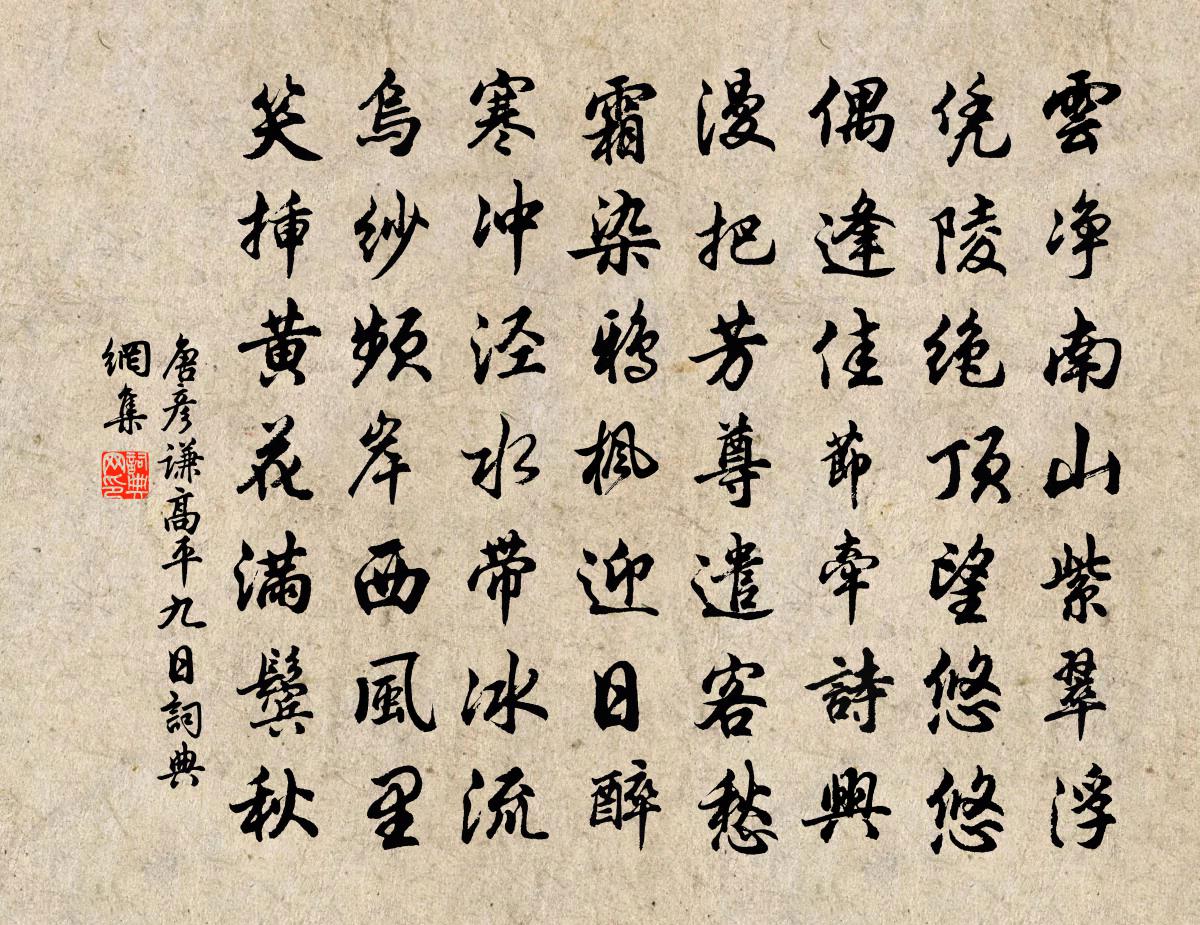 雲净南山紫翠浮
凭陵绝顶望悠悠
偶逢佳節牽詩興
漫把芳尊遣客愁
霜染鴉楓迎日醉
寒冲泾水带冰流
烏紗頻岸西風里
笑插黄花满鬓秋
唐彦谦高平九日詞典
網集
詞典
网